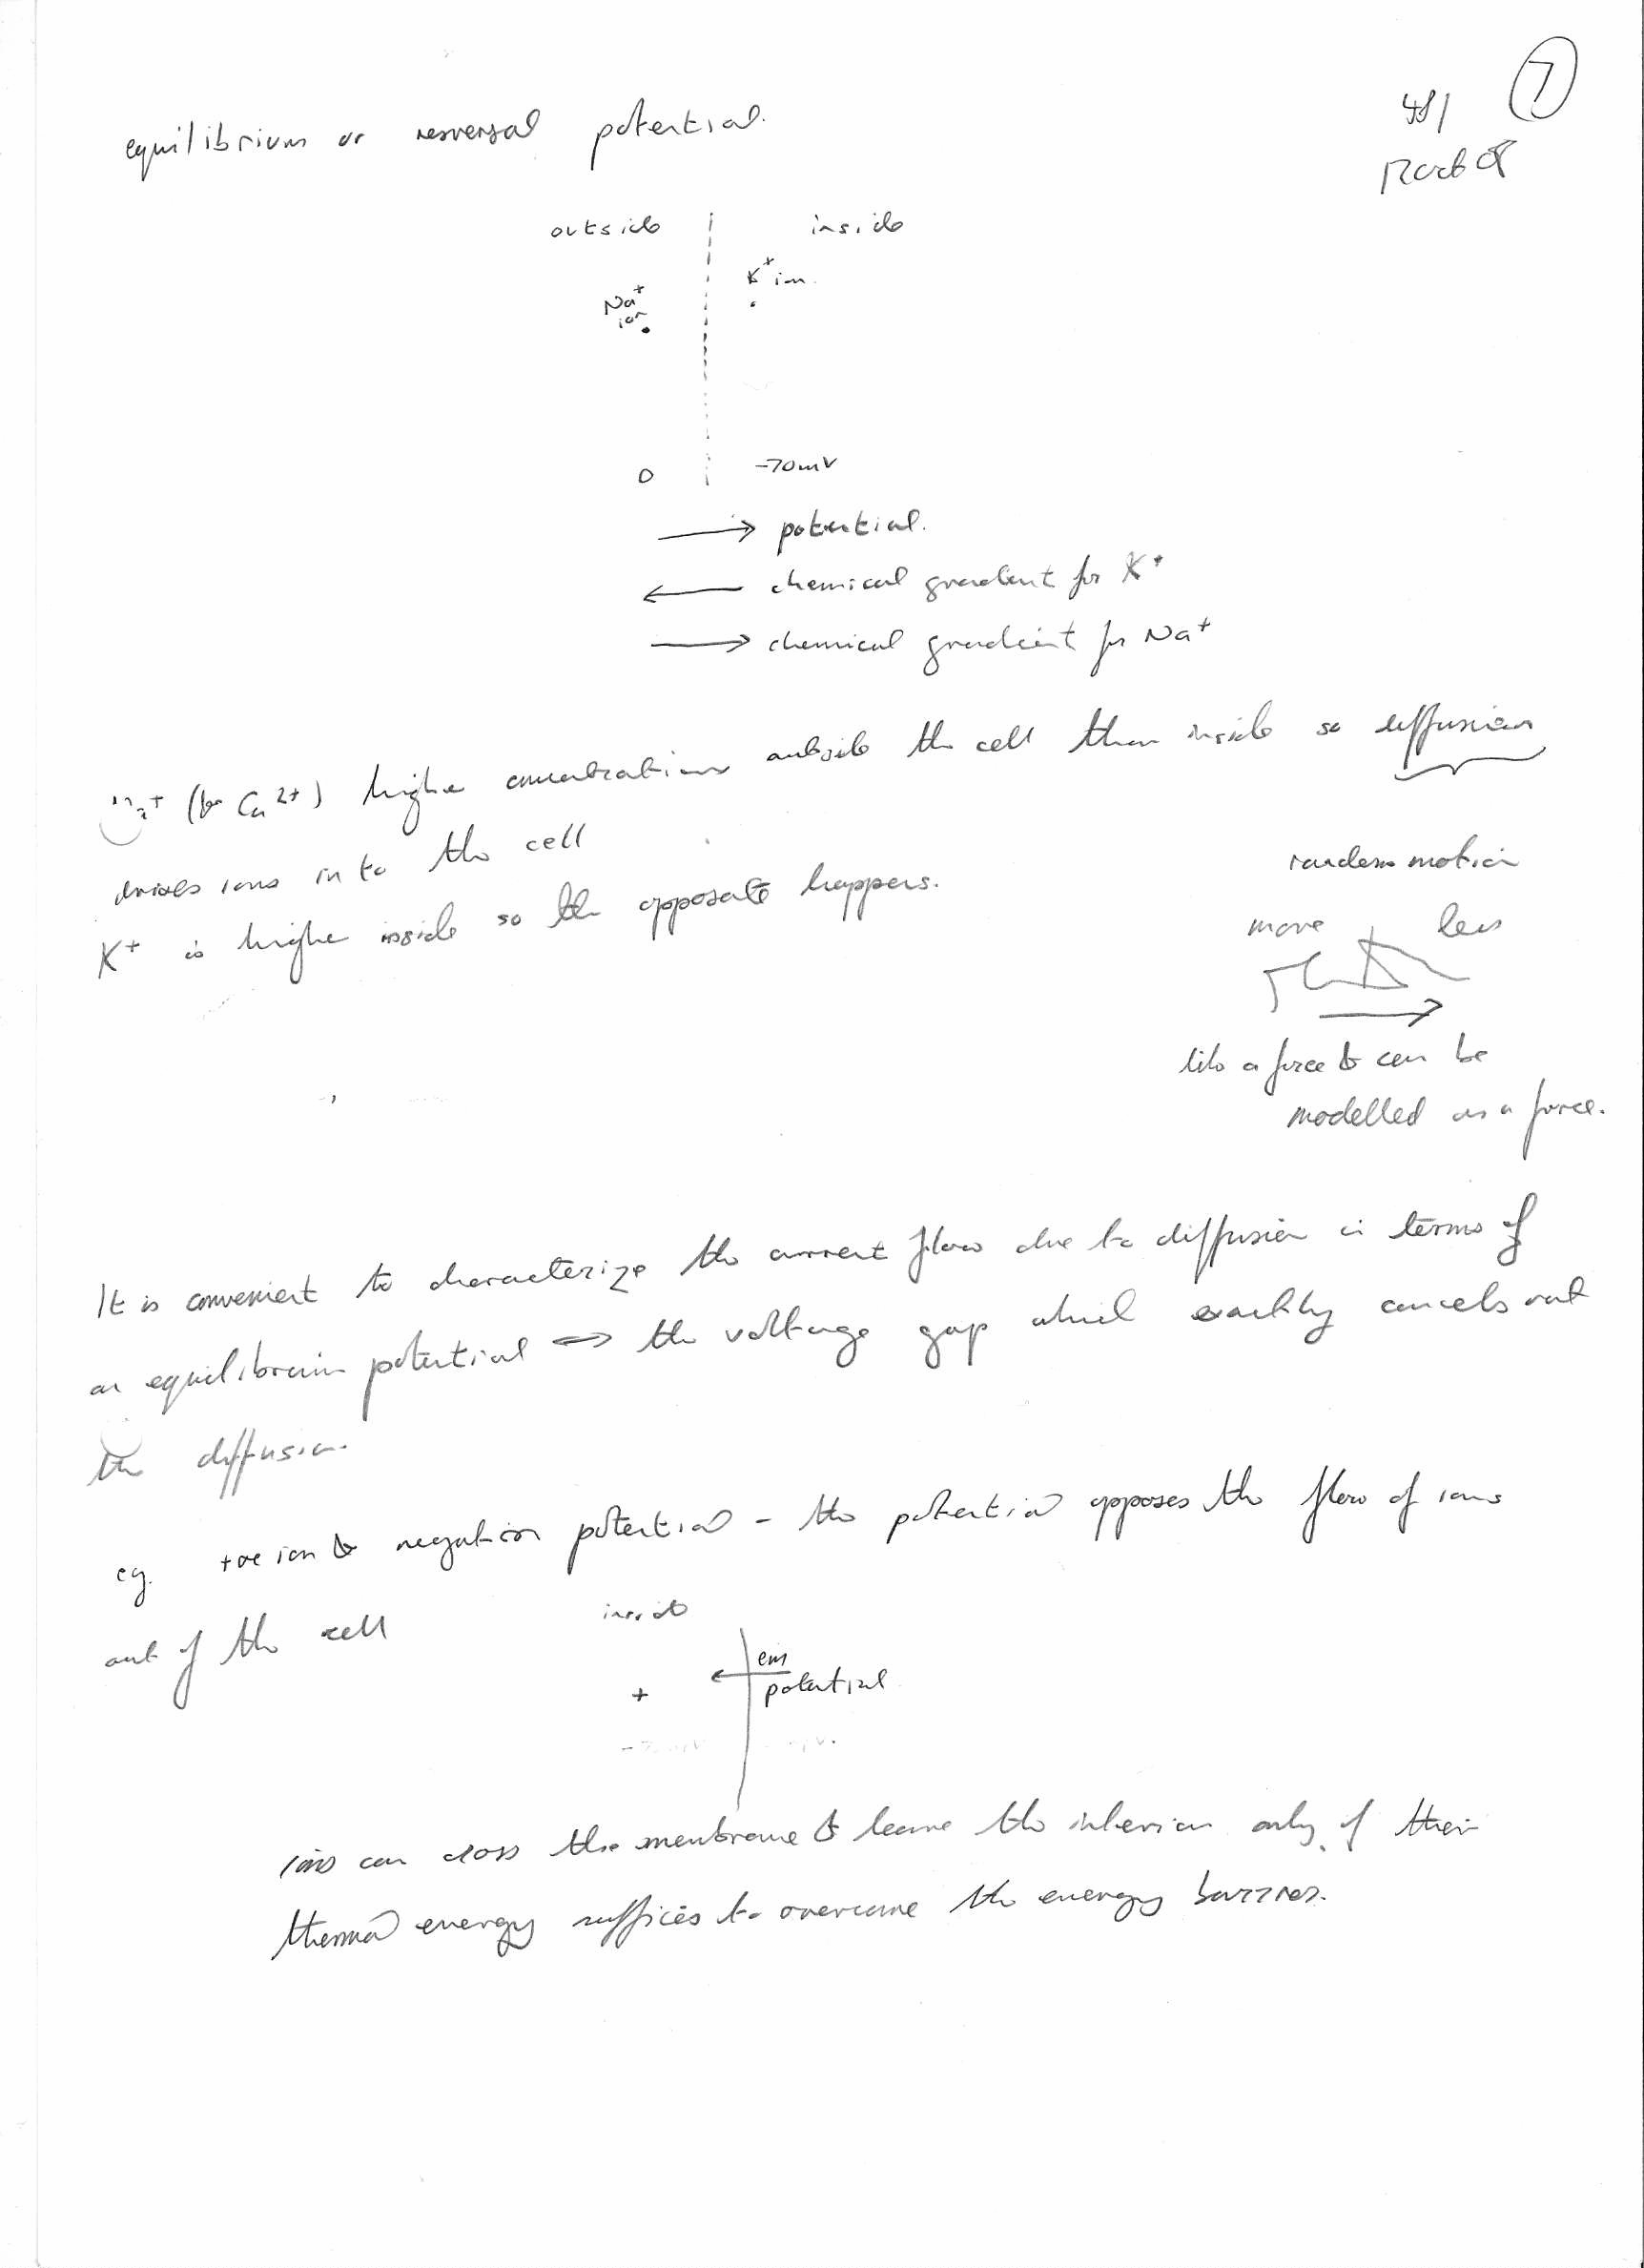 7
equilibrium or reversal potential.
outside inside
K+ ion.
Na+
ion
0 -70mV
→ potential.
← chemical gradient for K+
→ chemical gradient for Na+
Na+ (& Ca2+) higher concentrations outside the cell than inside so diffusion
drives ions into the cell
K+ is higher inside so the opposate happens.
random motion
more less
like a force & can be
modelled as a force.
It is convenient to characterize the current flow due to diffusion in terms of
an equilibrium potential ⇔ the voltage gap which exactly cancels out
the diffusion.
eg. +ve ion & negative potential - the potential opposes the flow of ions
out of the cell
inside
em
+ potential
ions can cross the membrane & leave the interior only if their
thermal energy suffices to overcome the energy barrier.